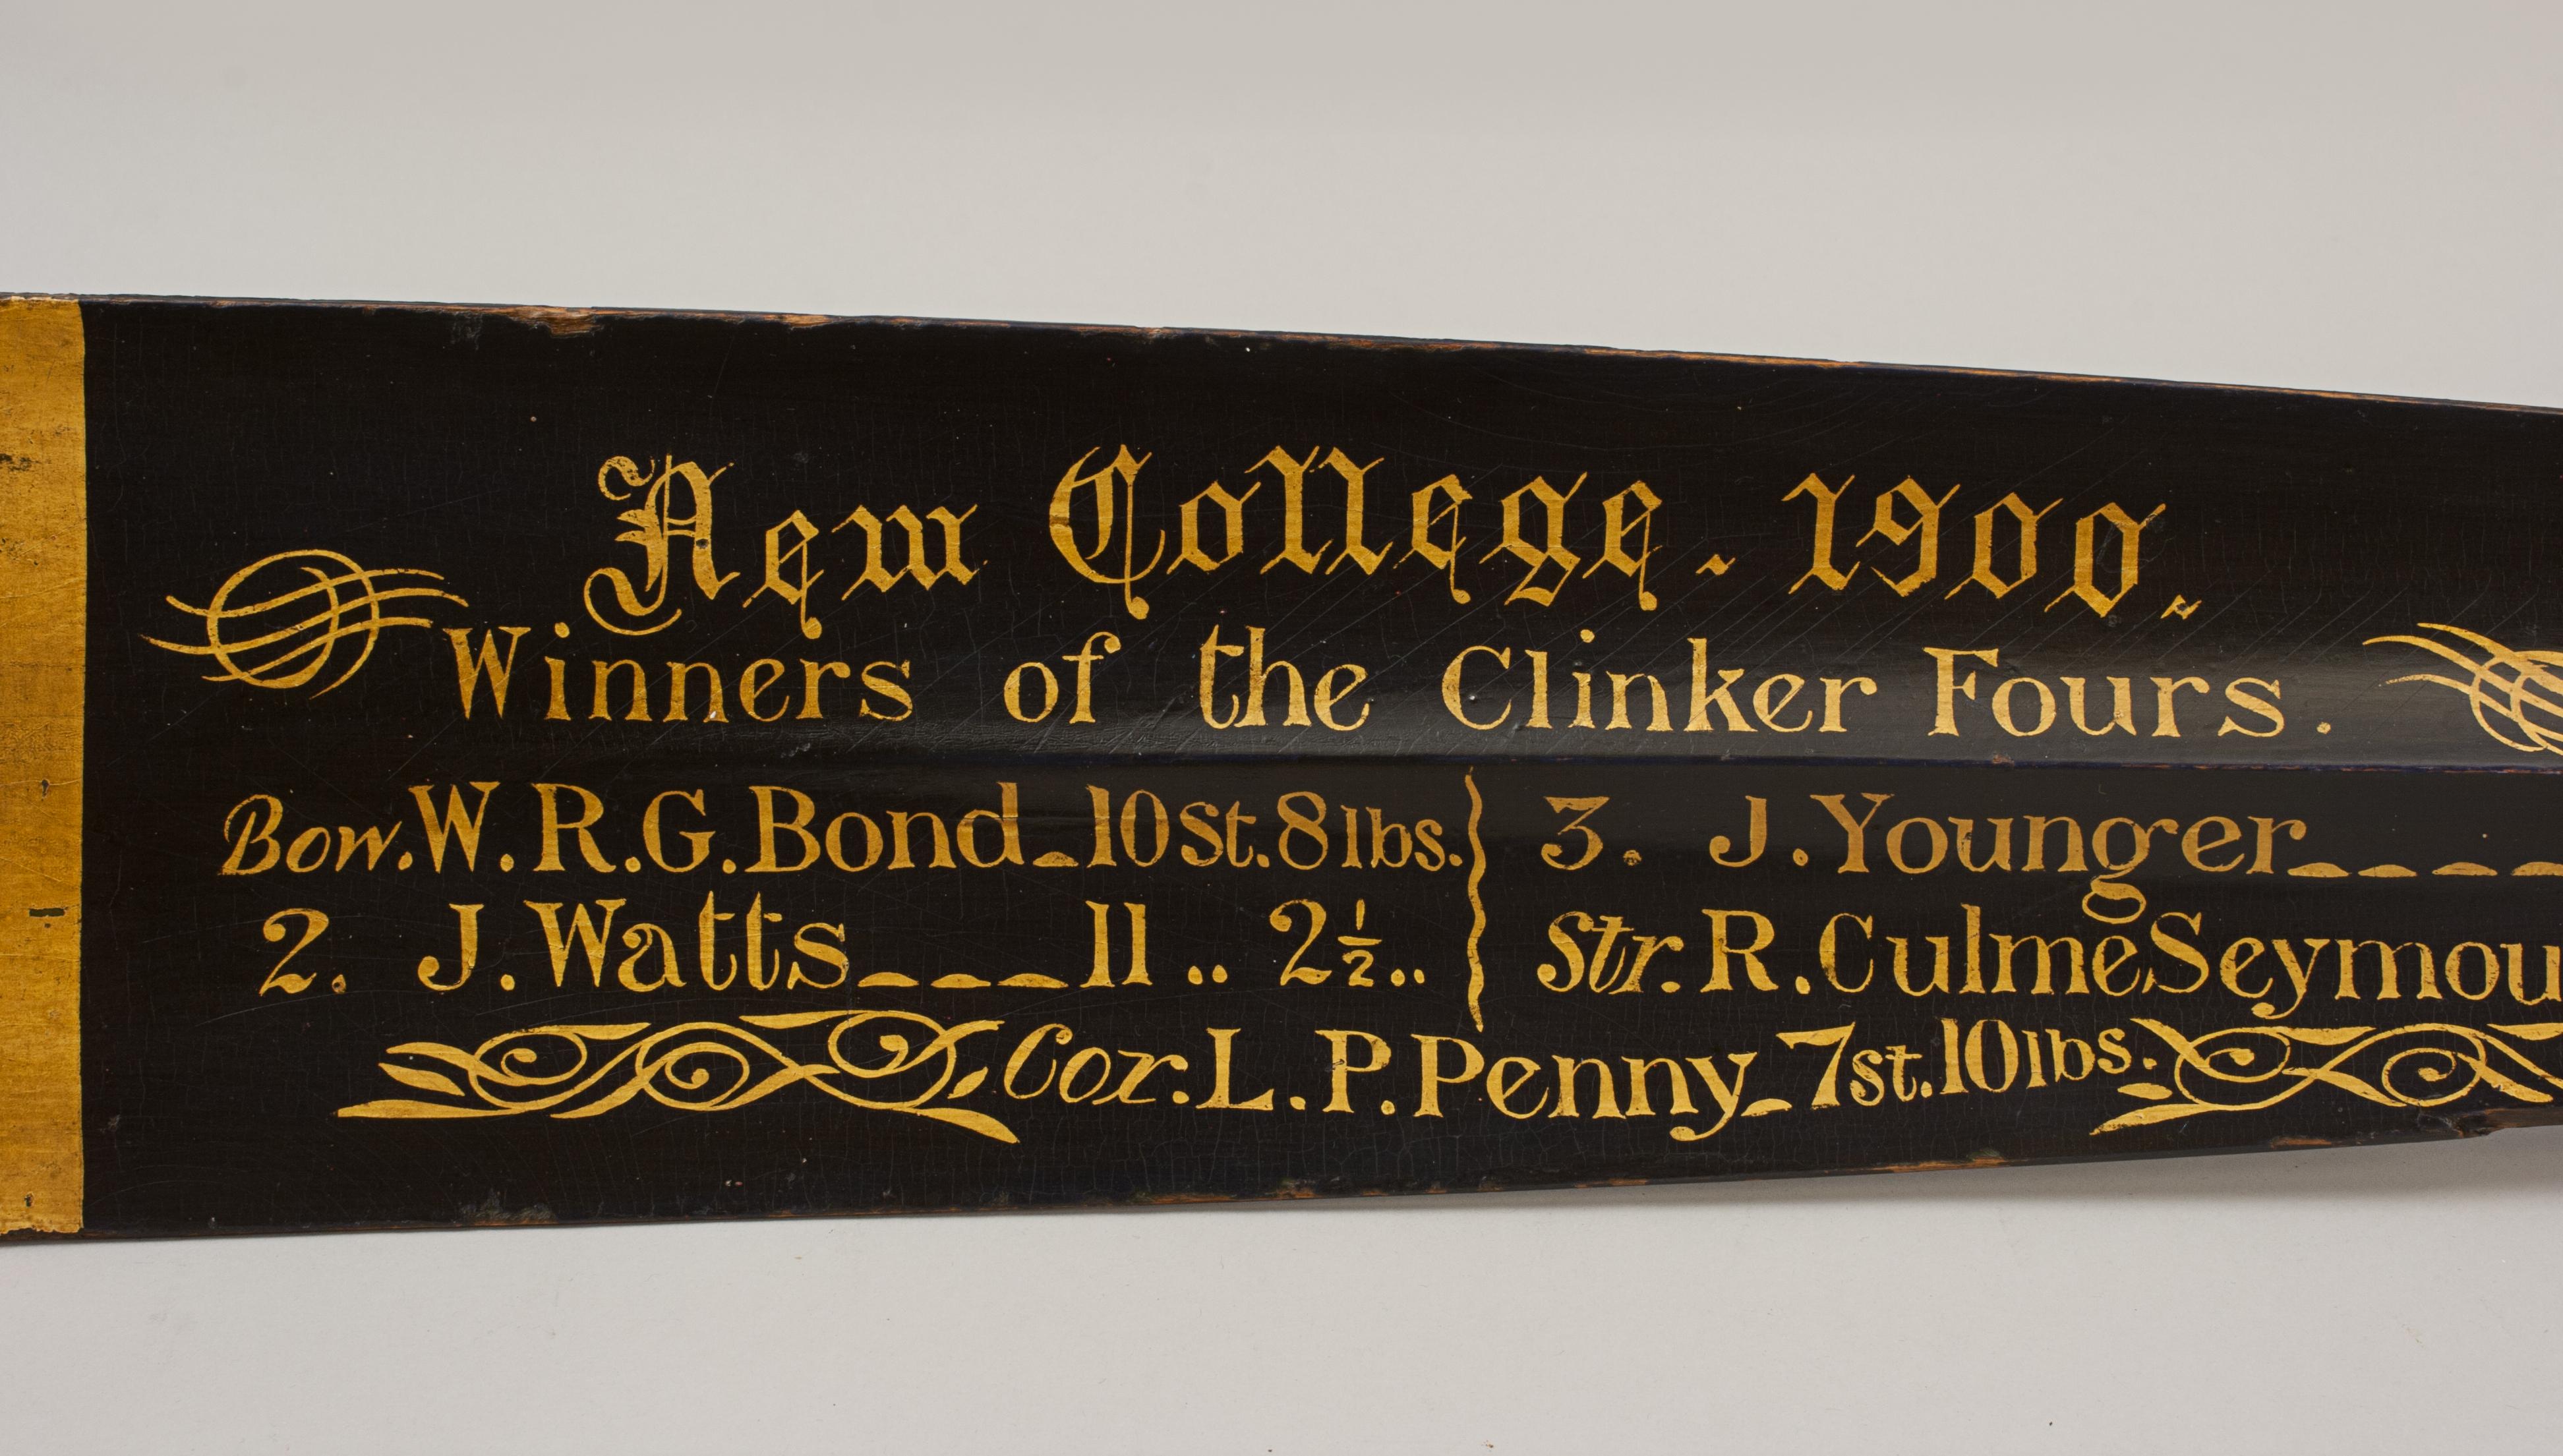 New College. 1900.
Winners of the Clinker Fours.
Bow. W. R. G. Bond - 10 St. 8 lbs.
2. J. Watts - - - 11 .. 2½ ..
3. J. Younger - - - -
Str. R. Culme Seymou
Cox: L. P. Penny - 7 st. 10 lbs.